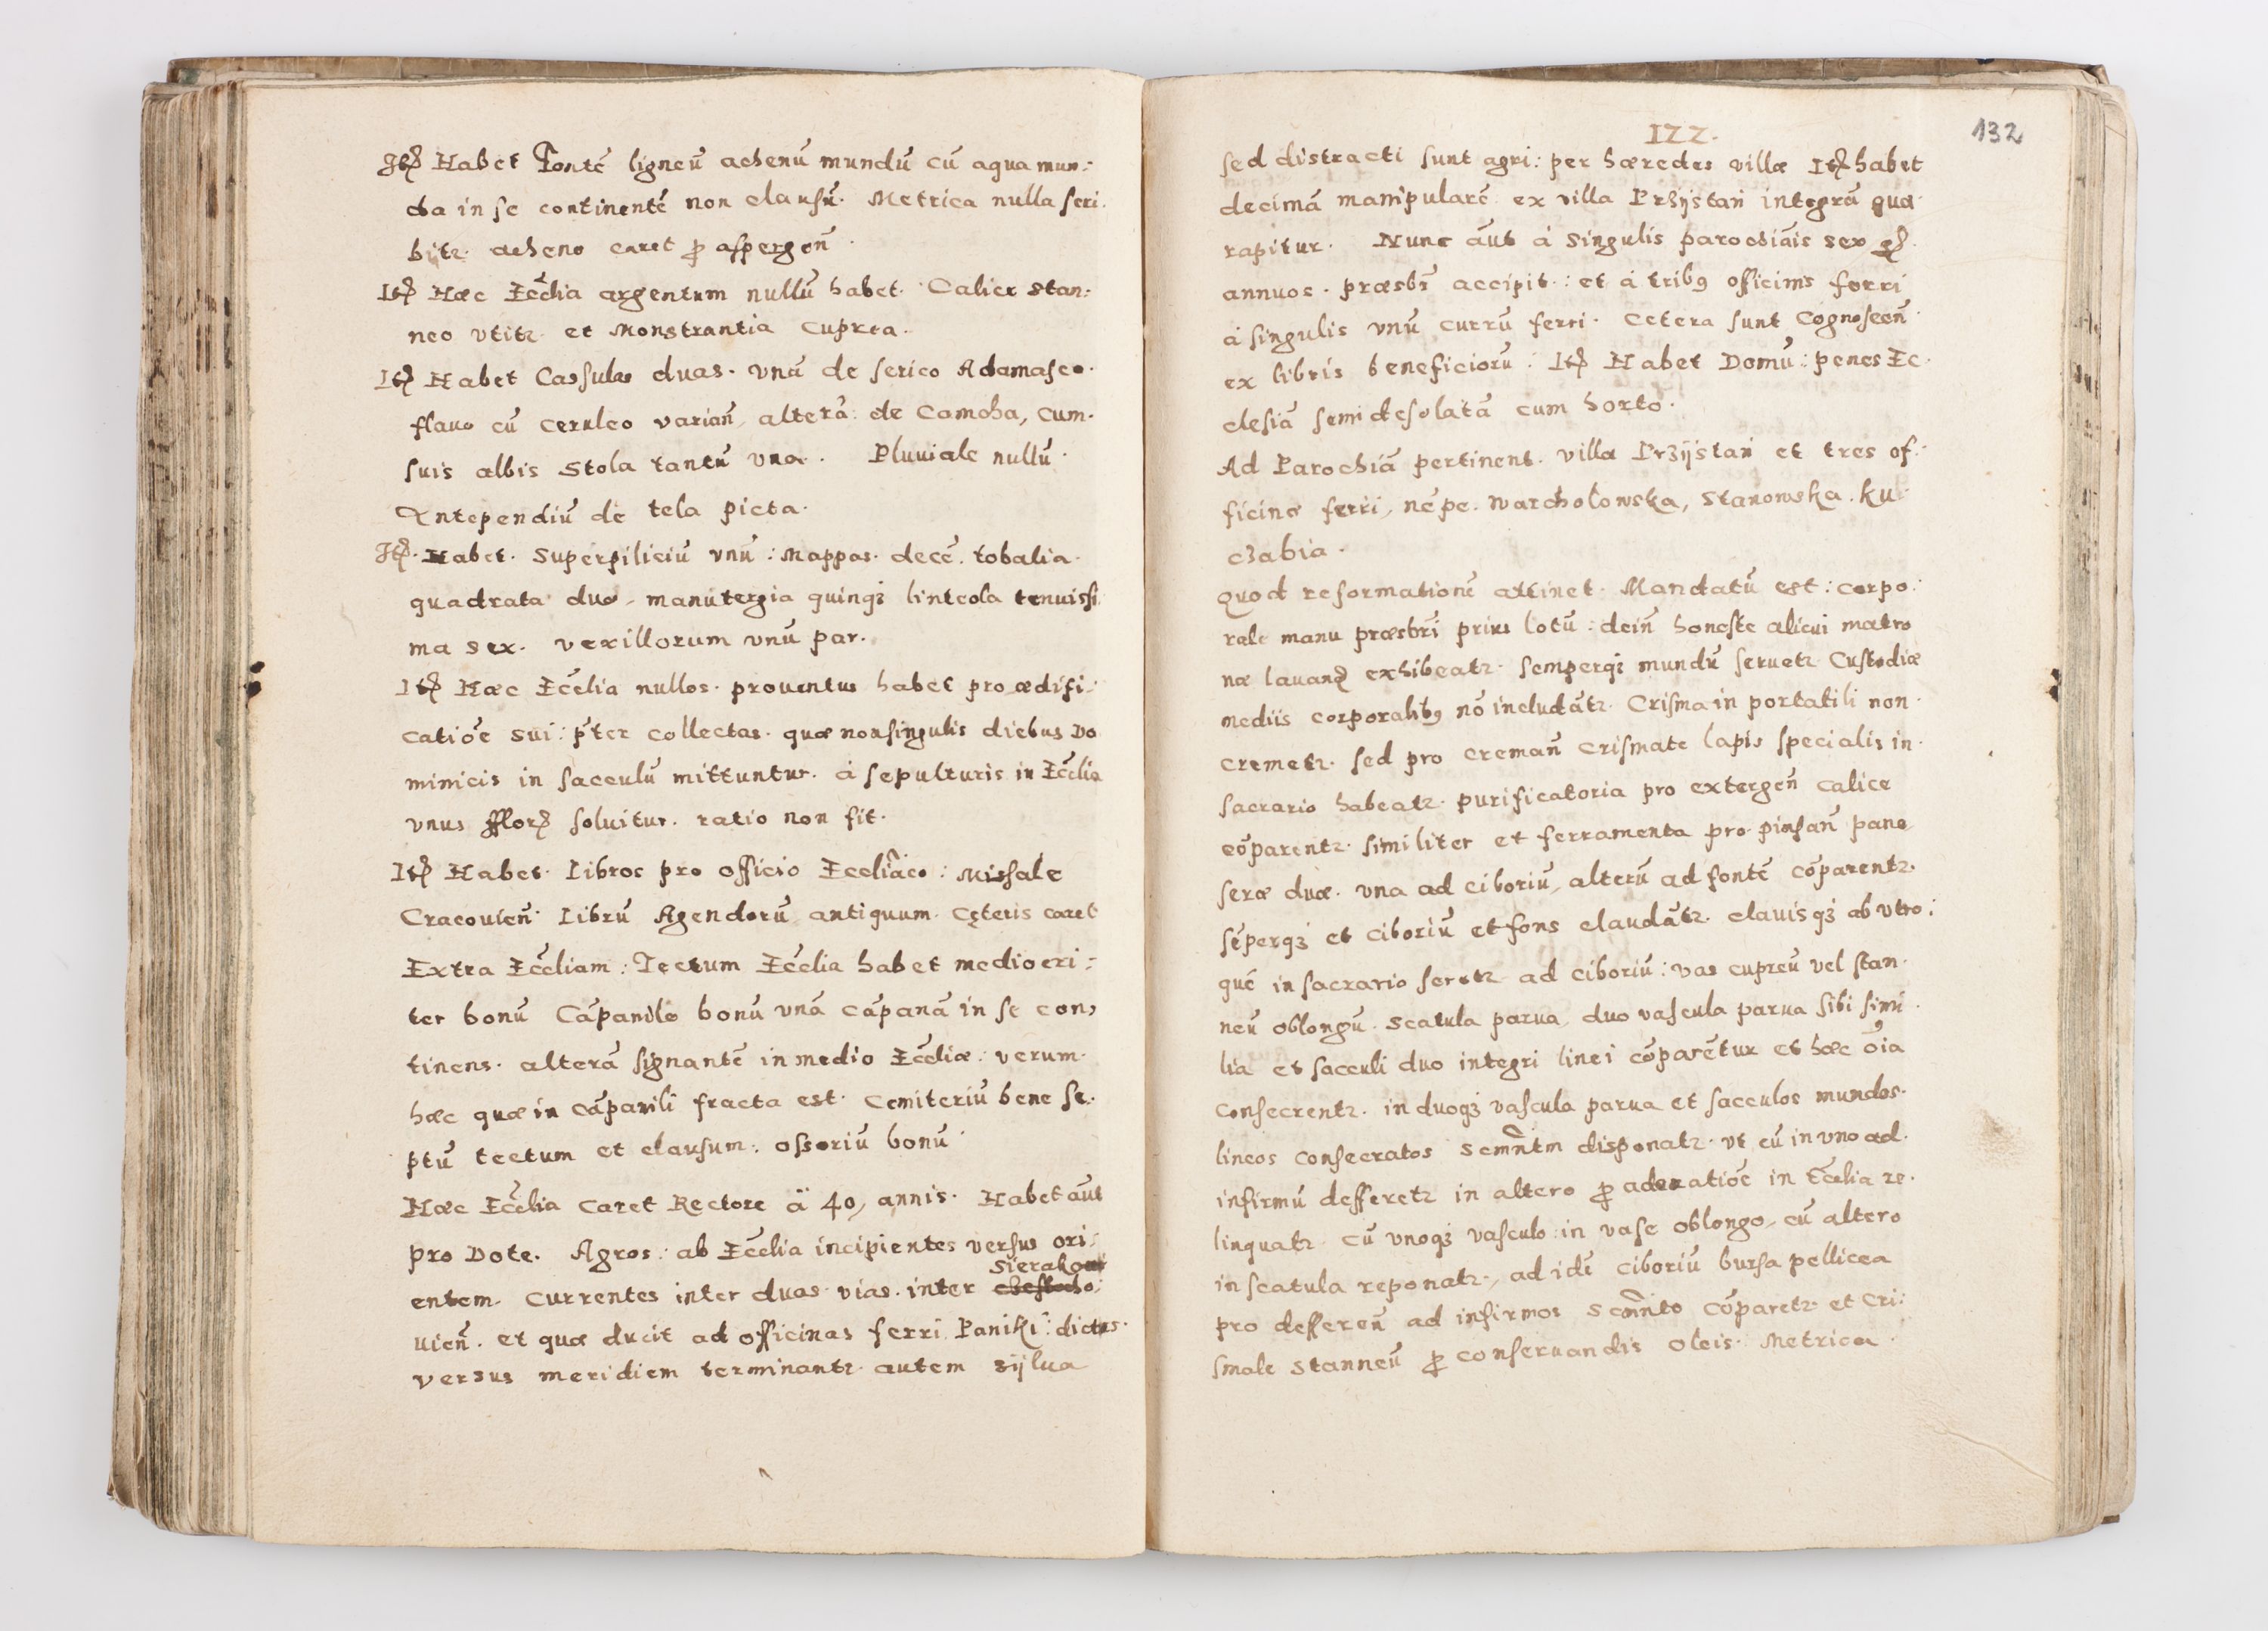 Itē Habet Fontē ligneū achenū mundū cū aqua mun:
da in se continentē non clausū. Metrica nulla scri.
bitr. acheno caret ꝑ aspergeñ.
Itē Hæc Eccłia argentum nullū habet. Calice stan:
neo vtitr. et Monstrantia cuprea.
Itē Habet Casulas duas. vnā de serico Adamasco.
flauo cū ceruleo varian̄, alterā: de Camcha, cum.
suis albis Stola tantū vna. Pluuiale nullū.
Antependiū de tela picta.
Itē. Habet. superpiliciū vnū: Mappas. decē. tobalia.
quadrata duo, manutergia quinqꝫ linteola tenuissi
ma sex. vexillorum vnū par.
Itē Hæc Eccłia nullos. prouentus habet pro ædifi:
catiōe sui: p̄ter collectas. quæ non singulis diebus Do
minicis in sacculū mittuntur. à sepulturis in Eccłia
vnus fflor. soluitur. ratio non fit.
Itē Habet. Libros pro officio Eccliāco: Missale
Cracouien̄. Librū Agendorū antiquum. Cęteris caret
Extra Eccłiam: Tectum Eccłia habet mediocri:
ter bonū Cāpanile bonū vnā cāpanā in se con,
tinens. alterā signantē in medio Eccłiæ: verum.
hæc quæ in cāpanili fracta est. Cemiteriū bene se.
ptū tectum et clausum: ossoriū bonū.
Hæc Eccłia caret Rectore à 40, annis. Habet aūt
pro Dote. Agros: ab Eccłia incipientes versus ori:
Sierakow
entem. Currentes inter duas vias. inter
uien̄. et quæ ducit ad officinas ferri Paniki: dictas.
versus meridiem terminantr. autem sylua
122.
132
sed distracti sunt agri: per hæredes villæ Itē habet
decimā manipularē ex villa Przÿstań integrā qua
rapitur. Nunc aūt à singulis parochiāis sex gꝭ.
annuos. præsbr̄ accipit: et à tribꝰ officinis ferri
à singulis vnū currū ferri. Cetera sunt Cognoscen̄.
ex libris beneficiorū: Itē Habet Domū: penes Ec.
clesiā semidesolatā cum horto.
Ad Parochiā pertinent. villa Przÿstań et tres of.
ficinæ ferri, nēpe. Warcholowska, Stanowska. Ku:
czabia.
Quod reformationē attinet. Mandatū est: corpo:
rale manu præsbr̄i prius lotū: dein̄ honeste alicui matro
næ lauandꝭ exhibeatr. semperqꝫ mundū seruetr. Custodiæ
mediis corporalibꝰ nō includātr. Crisma in portatili non.
cremetr. sed pro creman̄ crismate lapis specialis in.
sacrario habeatr. purificatoria pro extergen̄ calice
cōparentr. similiter et ferramenta pro pinsan̄ pane,
seræ duæ. vna ad ciboriū, alterū ad fontē cōparentr.
sēperqꝫ et ciboriū et fons claudātr. clauisqꝫ ab vtro:
quē in sacrario seretr ad ciboriū: vas cupreū vel stan.
neū oblongū. Scatula parua, duo vascula parua sibi simi.
lia et sacculi duo integri linei cōparētur et hæc oīa
Consecrentr. in duoqꝫ vascula parua et sacculos mundos.
lineos consecratos Scmn̄tm disponatr. vt cū in vno ad.
infirmū defferetr in altero ꝑ adoratiōe in Eccłia re.
linquatr. cū vnoqꝫ vasculo in vase oblongo, cū altero
in scatula reponatr., ad idē ciboriū bursa pellicea
pro defferen̄ ad infirmos Scmn̄to cōparetr. et Cri:
smale stanneū ꝑ conseruandis oleis. Metrica